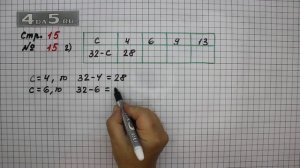 4DA5.RU
Стр. 15
№ 15 г)
с 4 6 9 13
32-с 28
с=4, то 32-4=28
с=6, то 32-6=